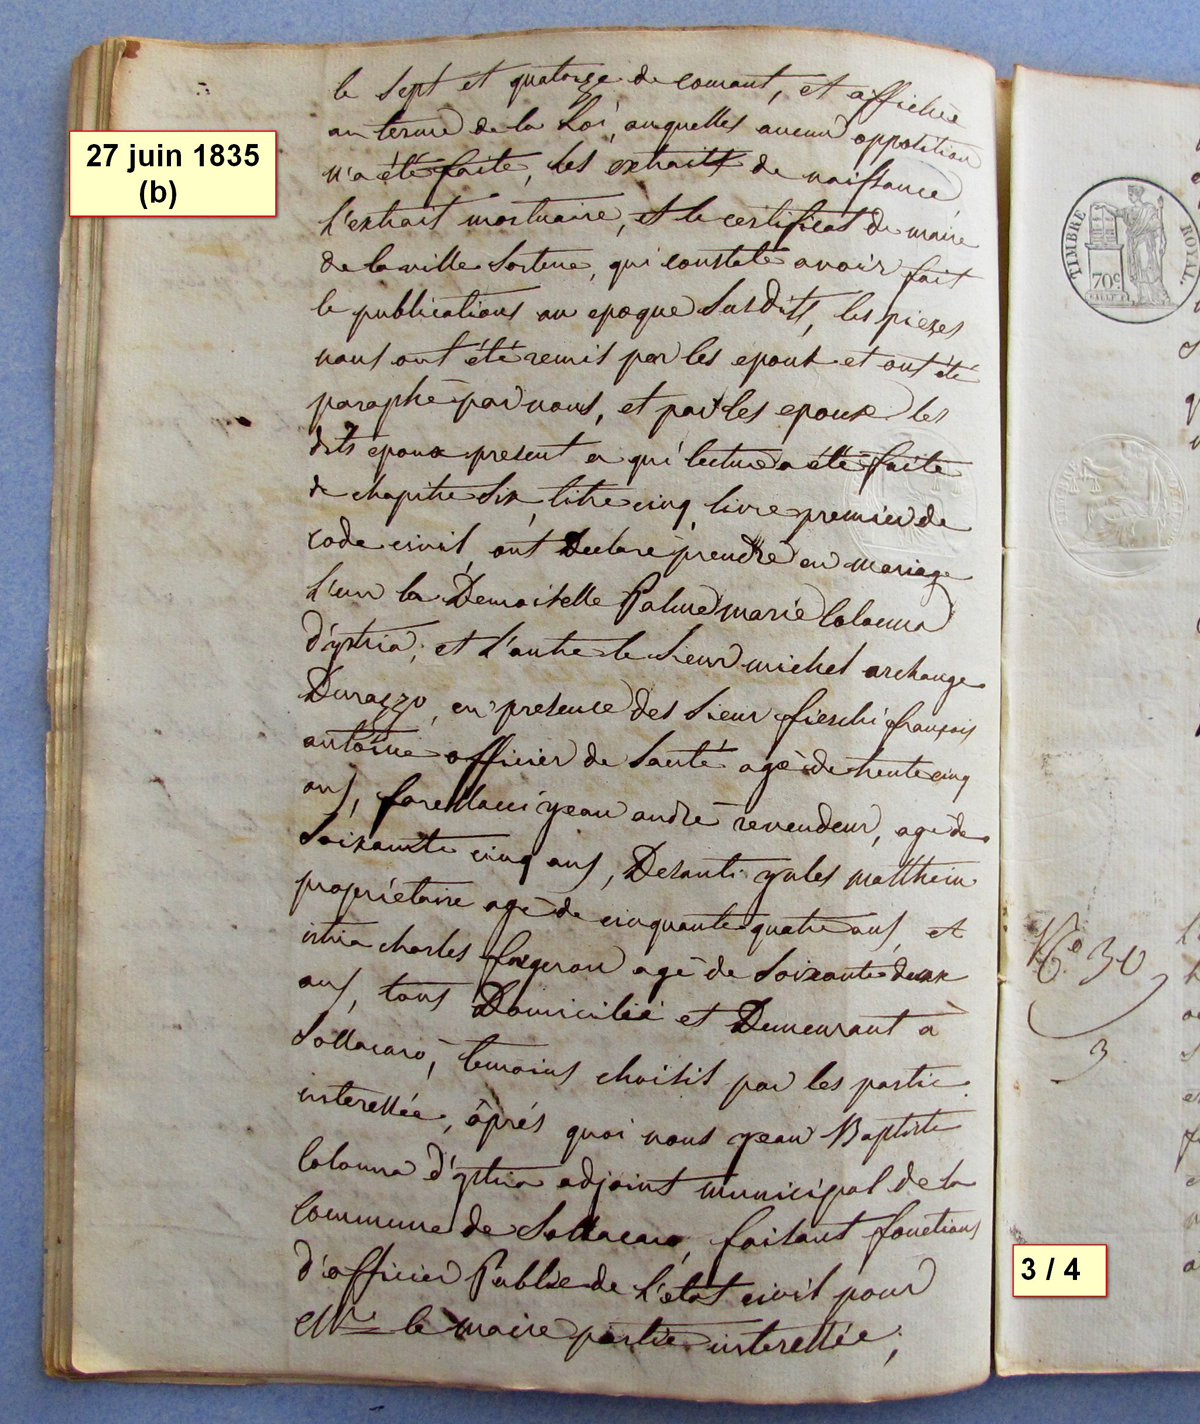 27 juin 1835
(b)
le sept et quatorze de courant, et affichée
au terme de la Loi, auquelles aucun opposition
n'a été faite, les extraits de naissance,
l'extrait mortuaire, et le certificat de maire
de la ville Sartene, qui constate avoir fait
le publications au epoque susdits, les piezes
nous ont été remis par les epoux et ont été
paraphé par nous, et par les epoux les
dits epoux present a qui lecture a été faite
de chapitre six, titre cinq, livre premier de
code civil, ont Declaré prendre en mariage
l'un la Demoiselle Palme marie Colonna
d'ystria, et l'autre le sieur michel archange
Durazzo, en presence des sieur fieschi françois
antoine officier de santé agé de trente cinq
ans, forellacci yean andré revendeur, agé de
soixante cinq ans, Desanti yules matthieu
propriétaire agé de cinquante quatre ans, et
istria charles forgeron agé de soixante deux
ans, tous Domicilié et Demeurant à
Sollacaro, temoins choisis par les partie
interessée, après quoi nous yean Baptiste
Colonna d'ystria adjoint municipal de la
commune de Sollacaro, faisant fonctions
d'officier Public de l'état civil pour
Mr le maire partie interessée,
TIMBRE ROYAL
70c
No 30
3
3 / 4